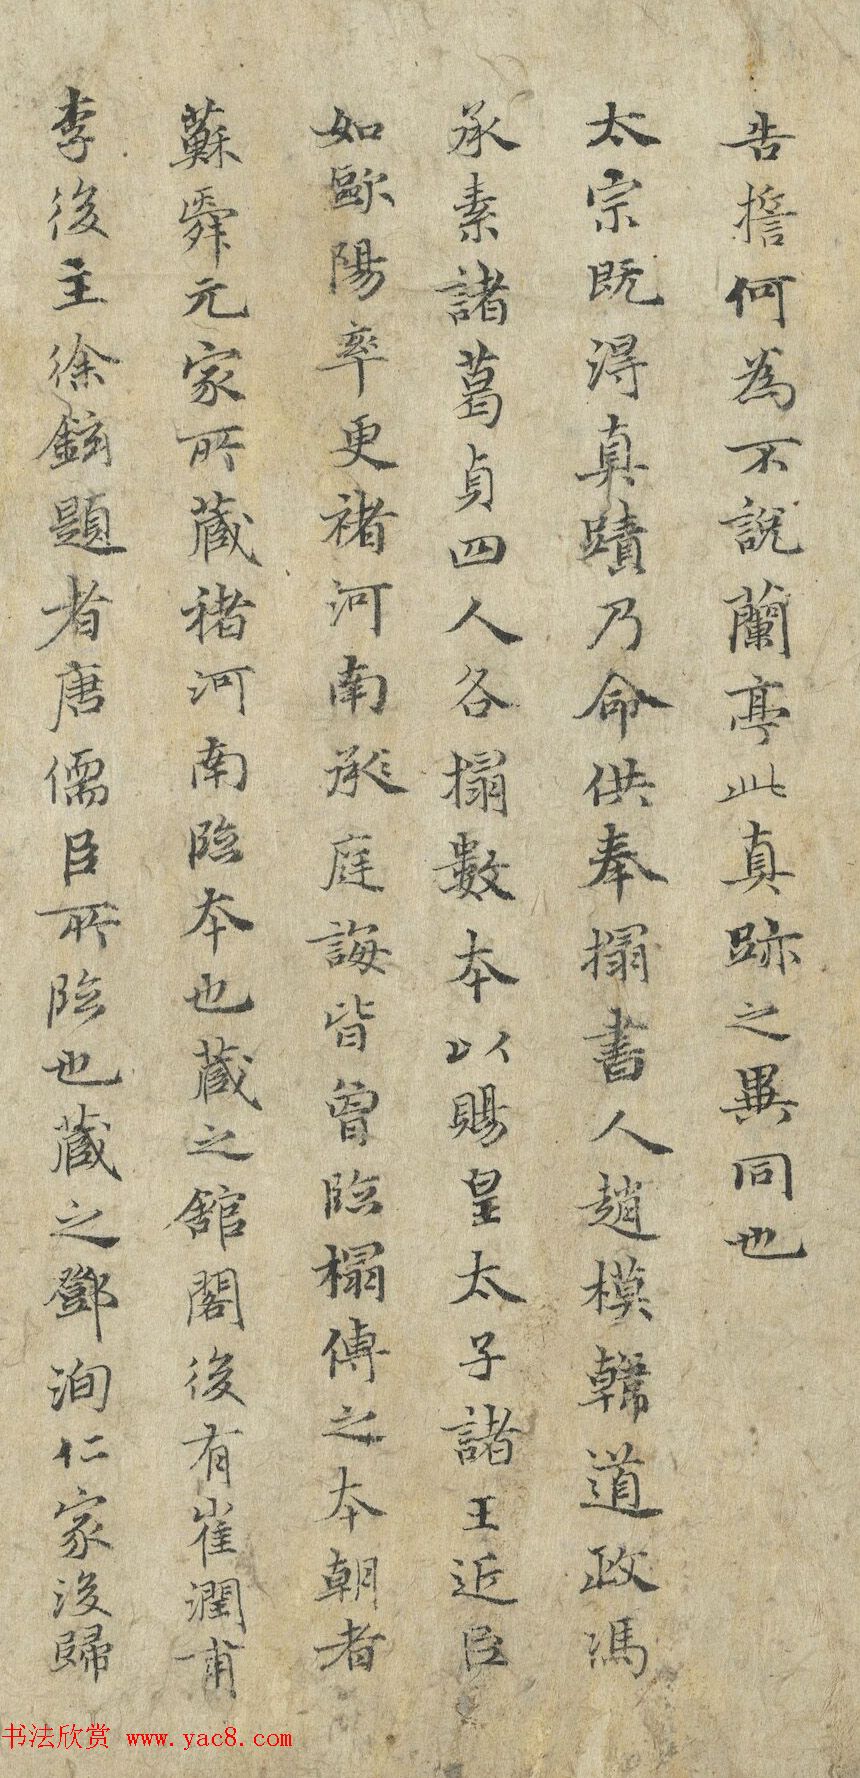 告擔何為不說蘭亭此真跡之異同也
太宗既得真蹟乃命供奉搨書人趙模韓道政馮
承素諸葛貞四人各搨數本以賜皇太子諸王近臣
如歐陽率更褚河南承庭誨皆曾臨榻傳之本朝者
蘇舜元家所藏褚河南臨本也蔵之館閣後有崔潤甫
李後主徐鉉題者唐儒臣所臨也蔵之鄧洵仁家後歸
书法欣赏 www.yac8.com